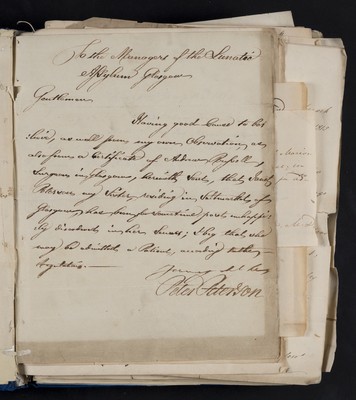 To the Managers of the Lunatic
Asylum Glasgow
Gentlemen
Having good Cause to be=
=lieve, as well from my own Observation, as
also from a Certificate of Andrew Russell,
Surgeon in Glasgow, herewith sent, that Janet
Peterson my Sister, residing in Saltmarket of
Glasgow, has been for sometime past unhappi=
=ly disordered in her Senses; I beg that she
may be admitted a Patient, according to the
Regulations.
Peter Peterson